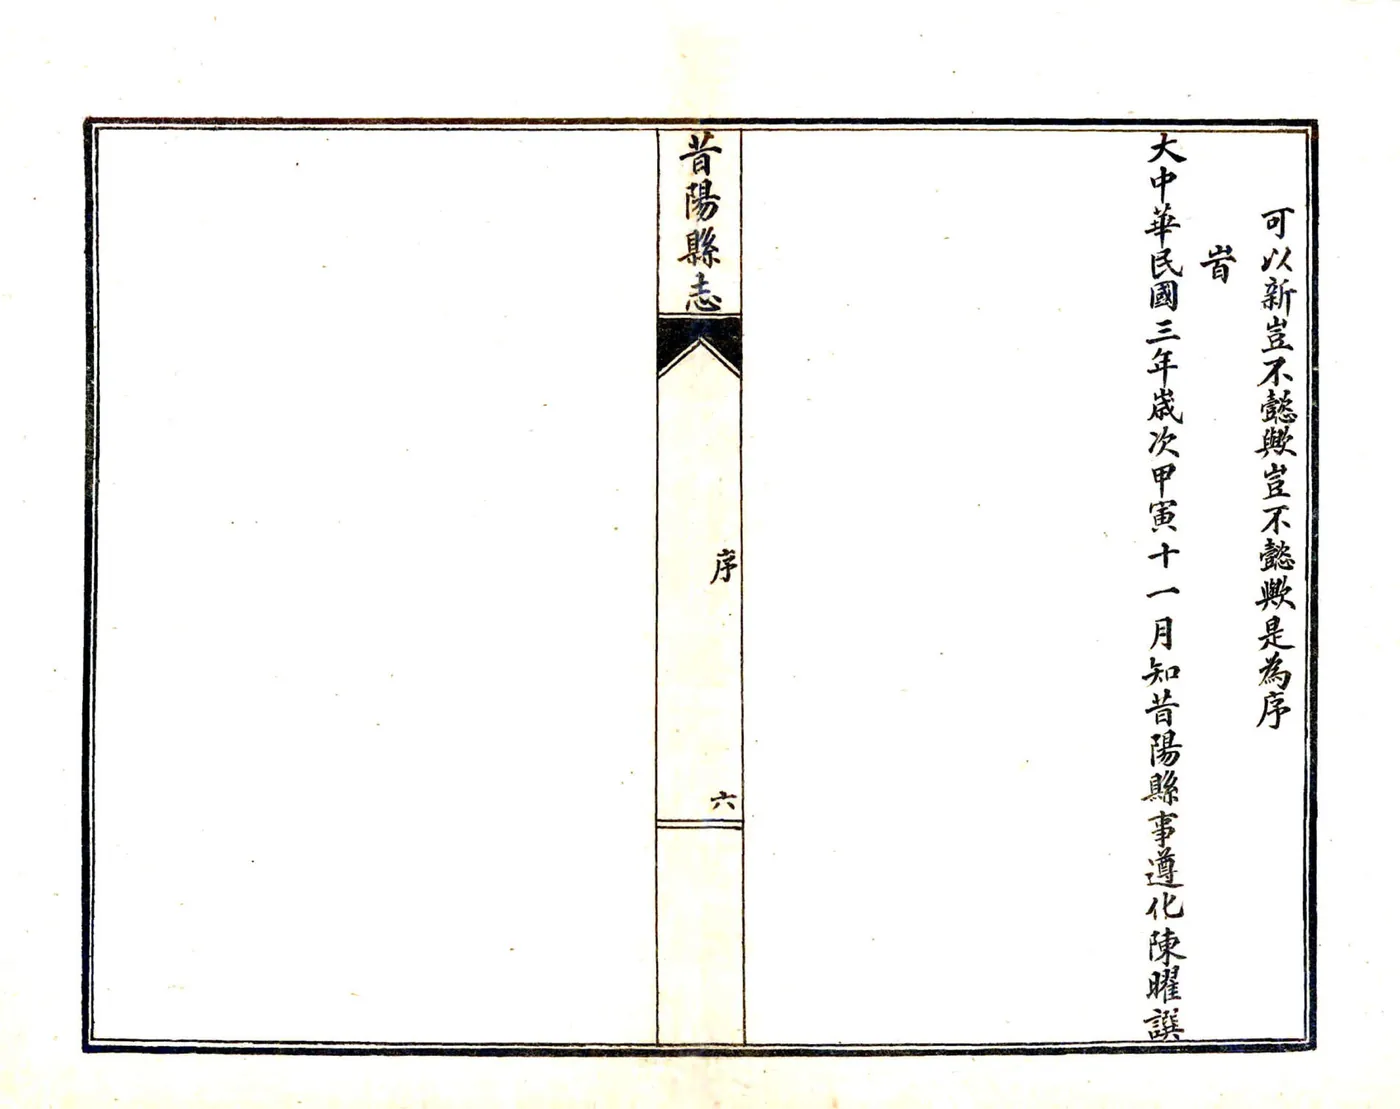 可以新豈不懿歟豈不懿歟是為序
旹
大中華民國三年嵗次甲寅十一月知昔陽縣事遵化陳曜譔
昔陽縣志
序
六